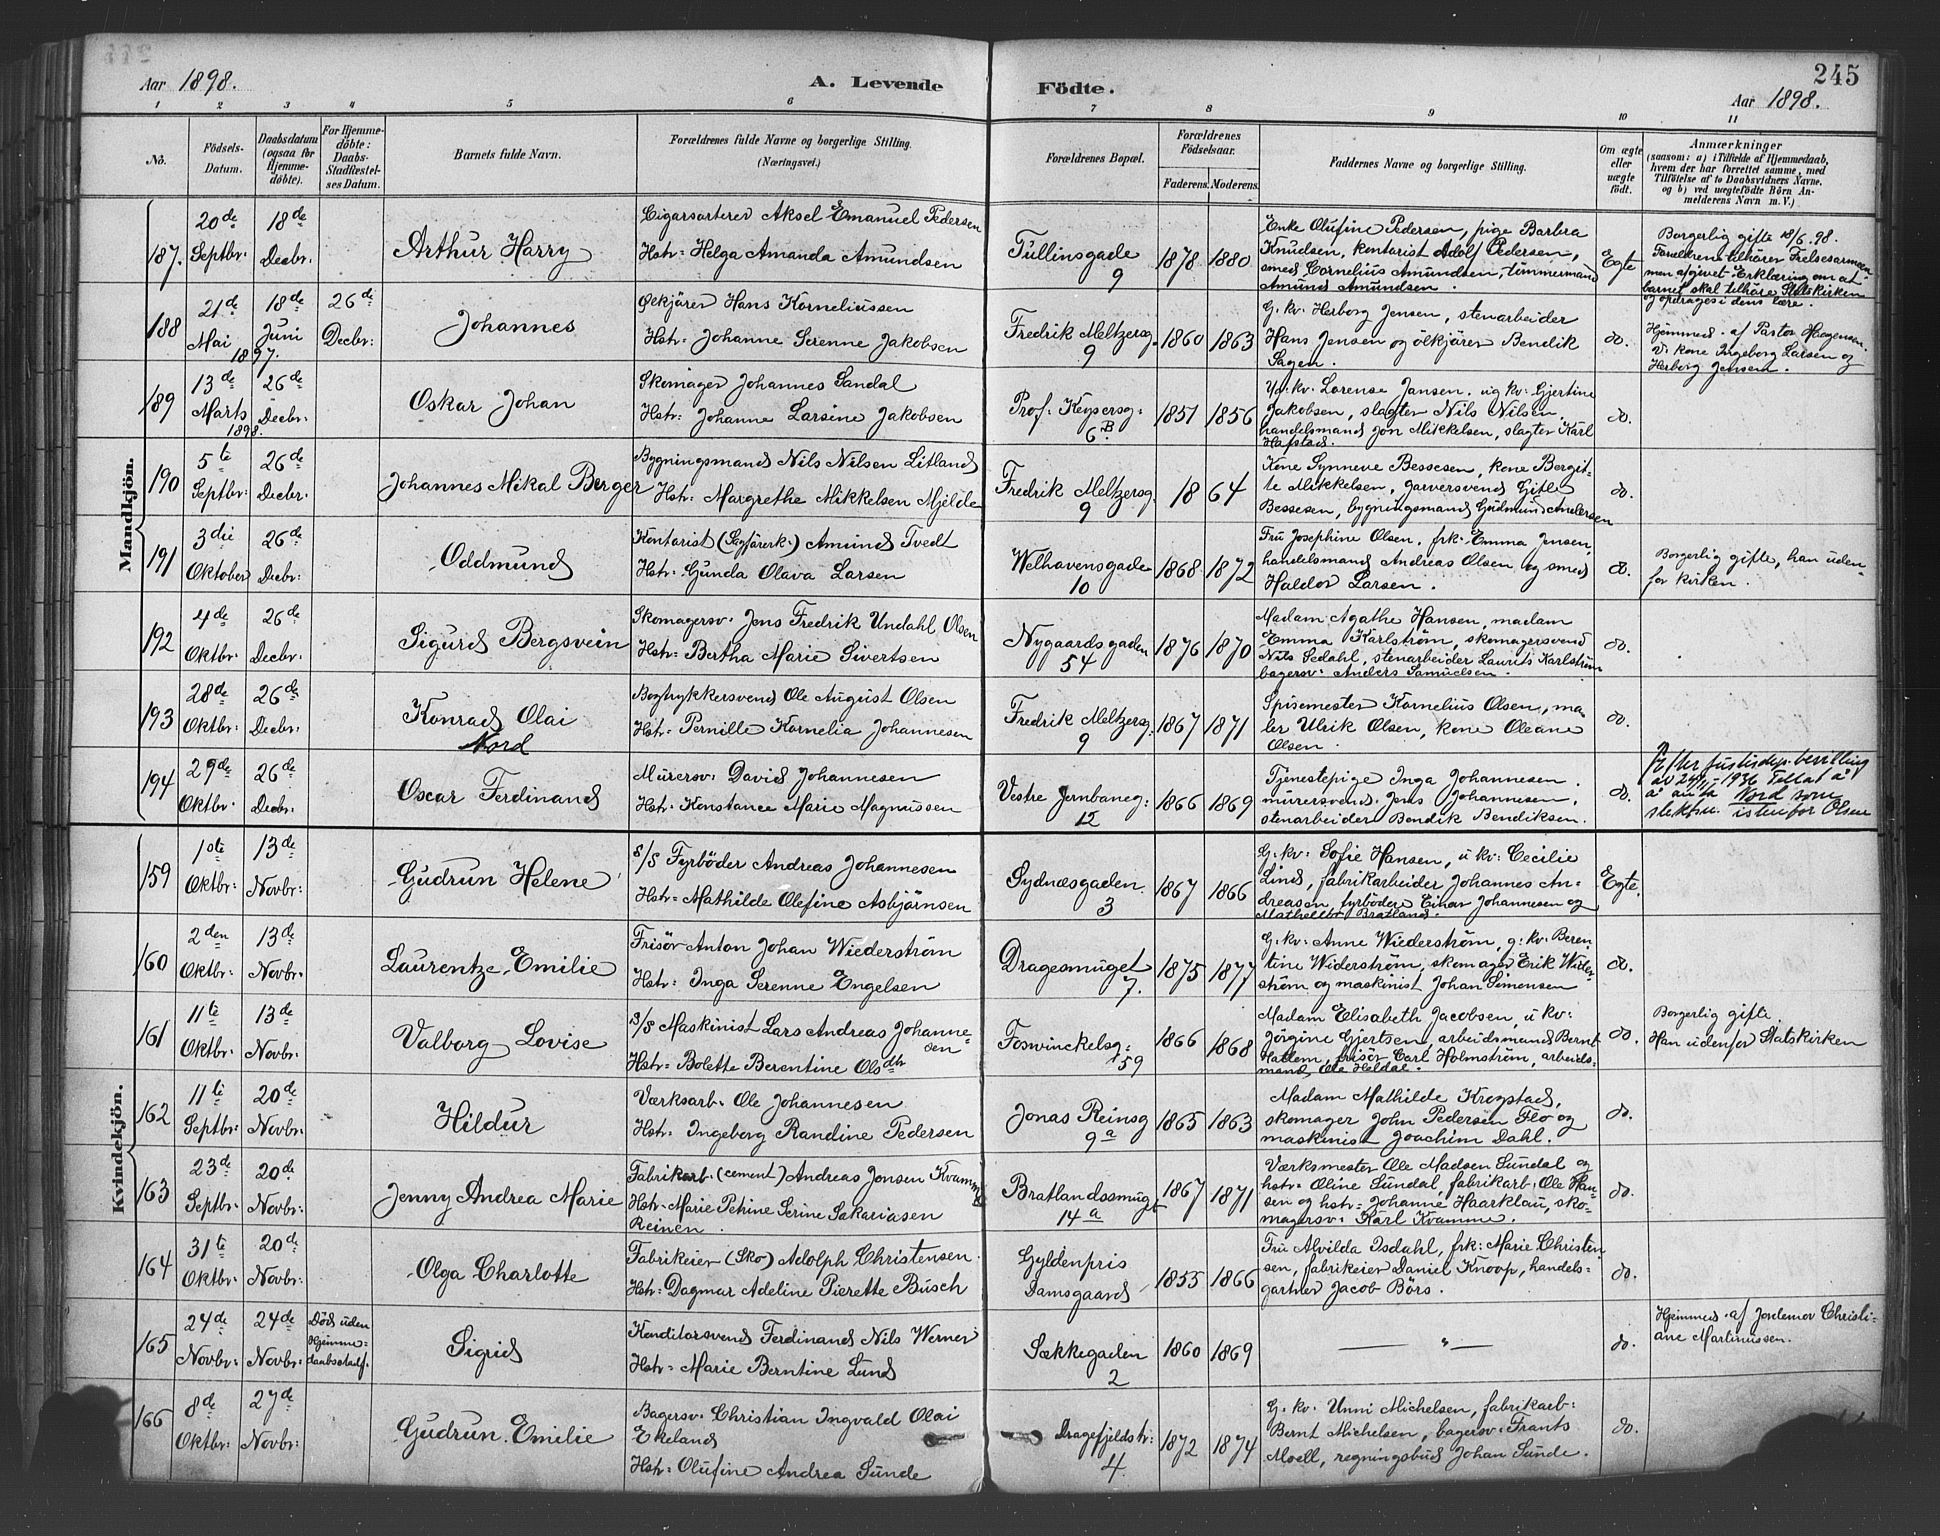 245
Aar 1898.
A. Levende Födte.
Aar 1898.
1 2 3 4 5 6 7 8 9 10 11
No.
Födsels-Datum.
Daabsdatum (ogsaa for Hjemme-døbte).
For Hjemme-døbte: Daabs-Stadfæstel-ses Datum.
Barnets fulde Navn.
Forældrenes fulde Navne og borgerlige Stilling. (Næringsvei.)
Forældrenes Bopæl.
Forældrenes Födselsaar.
Faderens. Moderens.
Faddernes Navne og borgerlige Stilling.
Om ægte eller uægte födt.
Anmærkninger
(saasom: a) i Tilfælde af Hjemmedaab, hvem der har forrettet samme, med Tilföielse af to Daabsvidners Navne, og b) ved uegtefödte Börn Anmelderens Navn m. V.)
Mandkjön.
187. 20de Septbr: 18de Decbr: Arthur Harry
Cigarsorterer Aksel Emanuel Pedersen
Hstr: Helga Amanda Amundsen
Tullinsgade 9 1878 1880
Enke Olufine Pedersen, pige Barbra
Knudsen, kontorist Adolf Pedersen,
smed Cornelius Amundsen, tømmermand
Amund Amundsen.
Egte
Borgerlig gifte 18/6.98.
Forældrene tilhører Frelsesarmeen
men afgivet Erklæring om at
barnet skal tilhøre Statskirken
og opdrages i dens lære.
188 21de Mai 1897. 18de Juni 26de Decbr: Johannes
Ølkjører Hans Korneliussen
Hstr: Johanne Serenne Jakobsen
Fredrik Meltzersg. 9 1860 1863
G. kv. Herborg Jensen, stenarbeider
Hans Jensen og ølkjører Bendik
Sagen.
do.
Hjemmed. af Pastor Haagensen.
V. kone Ingeborg Larsen og
Herborg Jensen.
189 13de Marts 1898. 26de Decbr: Oskar Johan
Skomager Johannes Sandal
Hstr: Johanne Larsine Jakobsen
Prof. Keysersg: 6B 1851 1856
Lorense Jansen. ug kv: Gjertine
Jakobsen, slagter Nils Nilsen,
handelsmand Jon Mikkelsen, slagter Karl
Hafstad.
do.
190 5te Septbr: 26de Decbr. Johannes Mikal Berger
Bygningsmand Nils Nilsen Litland
Hstr: Margrethe Mikkelsen Mjelde
Fredrik Meltzersg. 9 1864
Kone Synneve Bessesen, kone Bergit-
te Mikkelsen, garversvend Gitle
Bessesen, bygningsmand Gudmund Andersen
do.
191 3die Oktober 26de Decbr: Oddmund
Kontorist (Sagførerk.) Amund Tvedt
Hstr: Gunda Olava Larsen
Welhavensgade 10 1868 1872
Fru Josephine Olsen. frk: Emma Jensen,
handelsmand Andreas Olsen og smed
Haldor Larsen.
do.
Borgerlig gifte, han uden-
for kirken.
192 4de Oktbr: 26de Decbr: Sigurd Bergsvein
Skomagersv: Jens Fredrik Undahl Olsen
Hstr: Bertha Marie Sivertsen
Nygaardsgaden 54 1876 1870
Madam Agathe Hansen, madam
Emma Karlstrøm, skomagersvend
Nils Sedahl, stenarbeider Laurits Karlstrøm
bagersv: Anders Samuelsen.
do.
193 28de Oktbr: 26de Decbr: Konrad Olai
Nord
Bogtrykkersvend Ole August Olsen
Hstr: Pernille Kornelia Johannesen
Fredrik Meltzersg. 9 1867 1871
Spisemester Kornelius Olsen, ma-
ler Ulrik Olsen, kone Oleane
Olsen.
do.
Efter justisdep. bevilling
av 1936 tillat å
å anta Nord som
slektsn. istenfor Olsen
194 29de Oktbr: 26de Decbr: Oscar Ferdinand
Murersv: David Johannesen
Hstr: Konstance Marie Magnussen
Vestre Jernbaneg: 12 1866 1869
Tjenestepige Inga Johannesen.
murersvend Jens Johannesen,
stenarbeider Bendik Bendiksen.
do.
Kvindekjön.
159 1ste Oktbr: 13de Novbr: Gudrun Helene
S/S Fyrbøder Andreas Johannesen
Hstr: Mathilde Olefine Asbjørnsen
Sydnæsgaden. 3 1867 1866
G: kv: Sofie Hansen, u kv: Cecilie
Lind, fabrikarbeider Johannes An-
dreasen, fyrbødere Einar Johannesen og
Bratland.
Egte.
160 2den Oktbr: 13de Novbr: Laurentze Emilie
Frisør Anton Johan Wiederstrøm
Hstr: Inga Serenne Engelsen
Dragesmuget 7. 1875 1877
G: kv: Anne Wiederstrøm, g: kv: Beren-
tine Widerstrøm, skomager Erik Wider-
strøm og maskinist Johan Simensen
do.
161 11te Oktbr: 13de Novbr: Valborg Lovise
S/S Maskinist Lars Andreas Johanne-
sen
Hstr: Bolette Berentine Olsdtr
Foswinckelsg: 59 1866 1868
Madam Elisabeth Jacobsen, u kv:
Jørgine Gjertsen, arbeidsmand Bernt
Hatlem, frisør Carl Holmstrøm, arbeids-
mand Ole Heldal.
do.
Borgerlig gifte.
Han udenfor Statskirken
162 11te Septbr: 20de Novbr: Hildur
Værksarb. Ole Johannesen
Hstr: Ingeborg Randine Pedersen
Jonas Reinsg 9a 1865 1863
Madam Mathilde Krogstad,
skomager John Pedersen Flo og
maskinist Joachim Dahl.
do.
163 23de Septbr: 20de Novbr: Jenny Andrea Marie
Fabrikarb. (cement) Andreas Jonsen Kvamme
Hstr: Marie Petrine Serine Sakariasen
Reinen.
Bratlandssmuget 14a 1867 1871
Værksmester Ole Madsen Sundal og
hstr: Oline Sundal, fabrikarb. Ole Han-
sen og hstr: Johanne Haarklau, sko-
magersv: Karl Kvamme.
do.
164 31te Oktbr: 20de Novbr: Olga Charlotte
Fabrikeier (Sko) Adolph Christensen.
Hstr: Dagmar Adeline Pierette Busch
Gyldenpris
Damsgaard 1855 1866
Fru Alvilda Isdahl, frk: Marie Christen
sen, fabrikeier Daniel Knoop, handels-
gartner Jacob Børs.
do.
165 24de Novbr: 24de Novbr: Død uden
Hjemme-
daabsstadf. Sigrid
Konditorsvend Ferdinand Nils Werner
Hstr: Marie Berntine Lund
Sækkegaden 2 1860 1869
— " —
do.
Hjemmed. af Jordemor Christi-
ane Martinussen.
166 8de Oktbr: 27de Novbr: Gudrun Emilie
Bagersv: Christian Ingvald Olai
Ekeland
Hstr: Olufine Andrea Sunde
Dragefjeldstr: 4 1872 1874
G: kv: Unni Michelsen, fabrikarb:
Bernt Michelsen, bagersv: Frants
Moell, regningsbud Johan Sunde.
do.